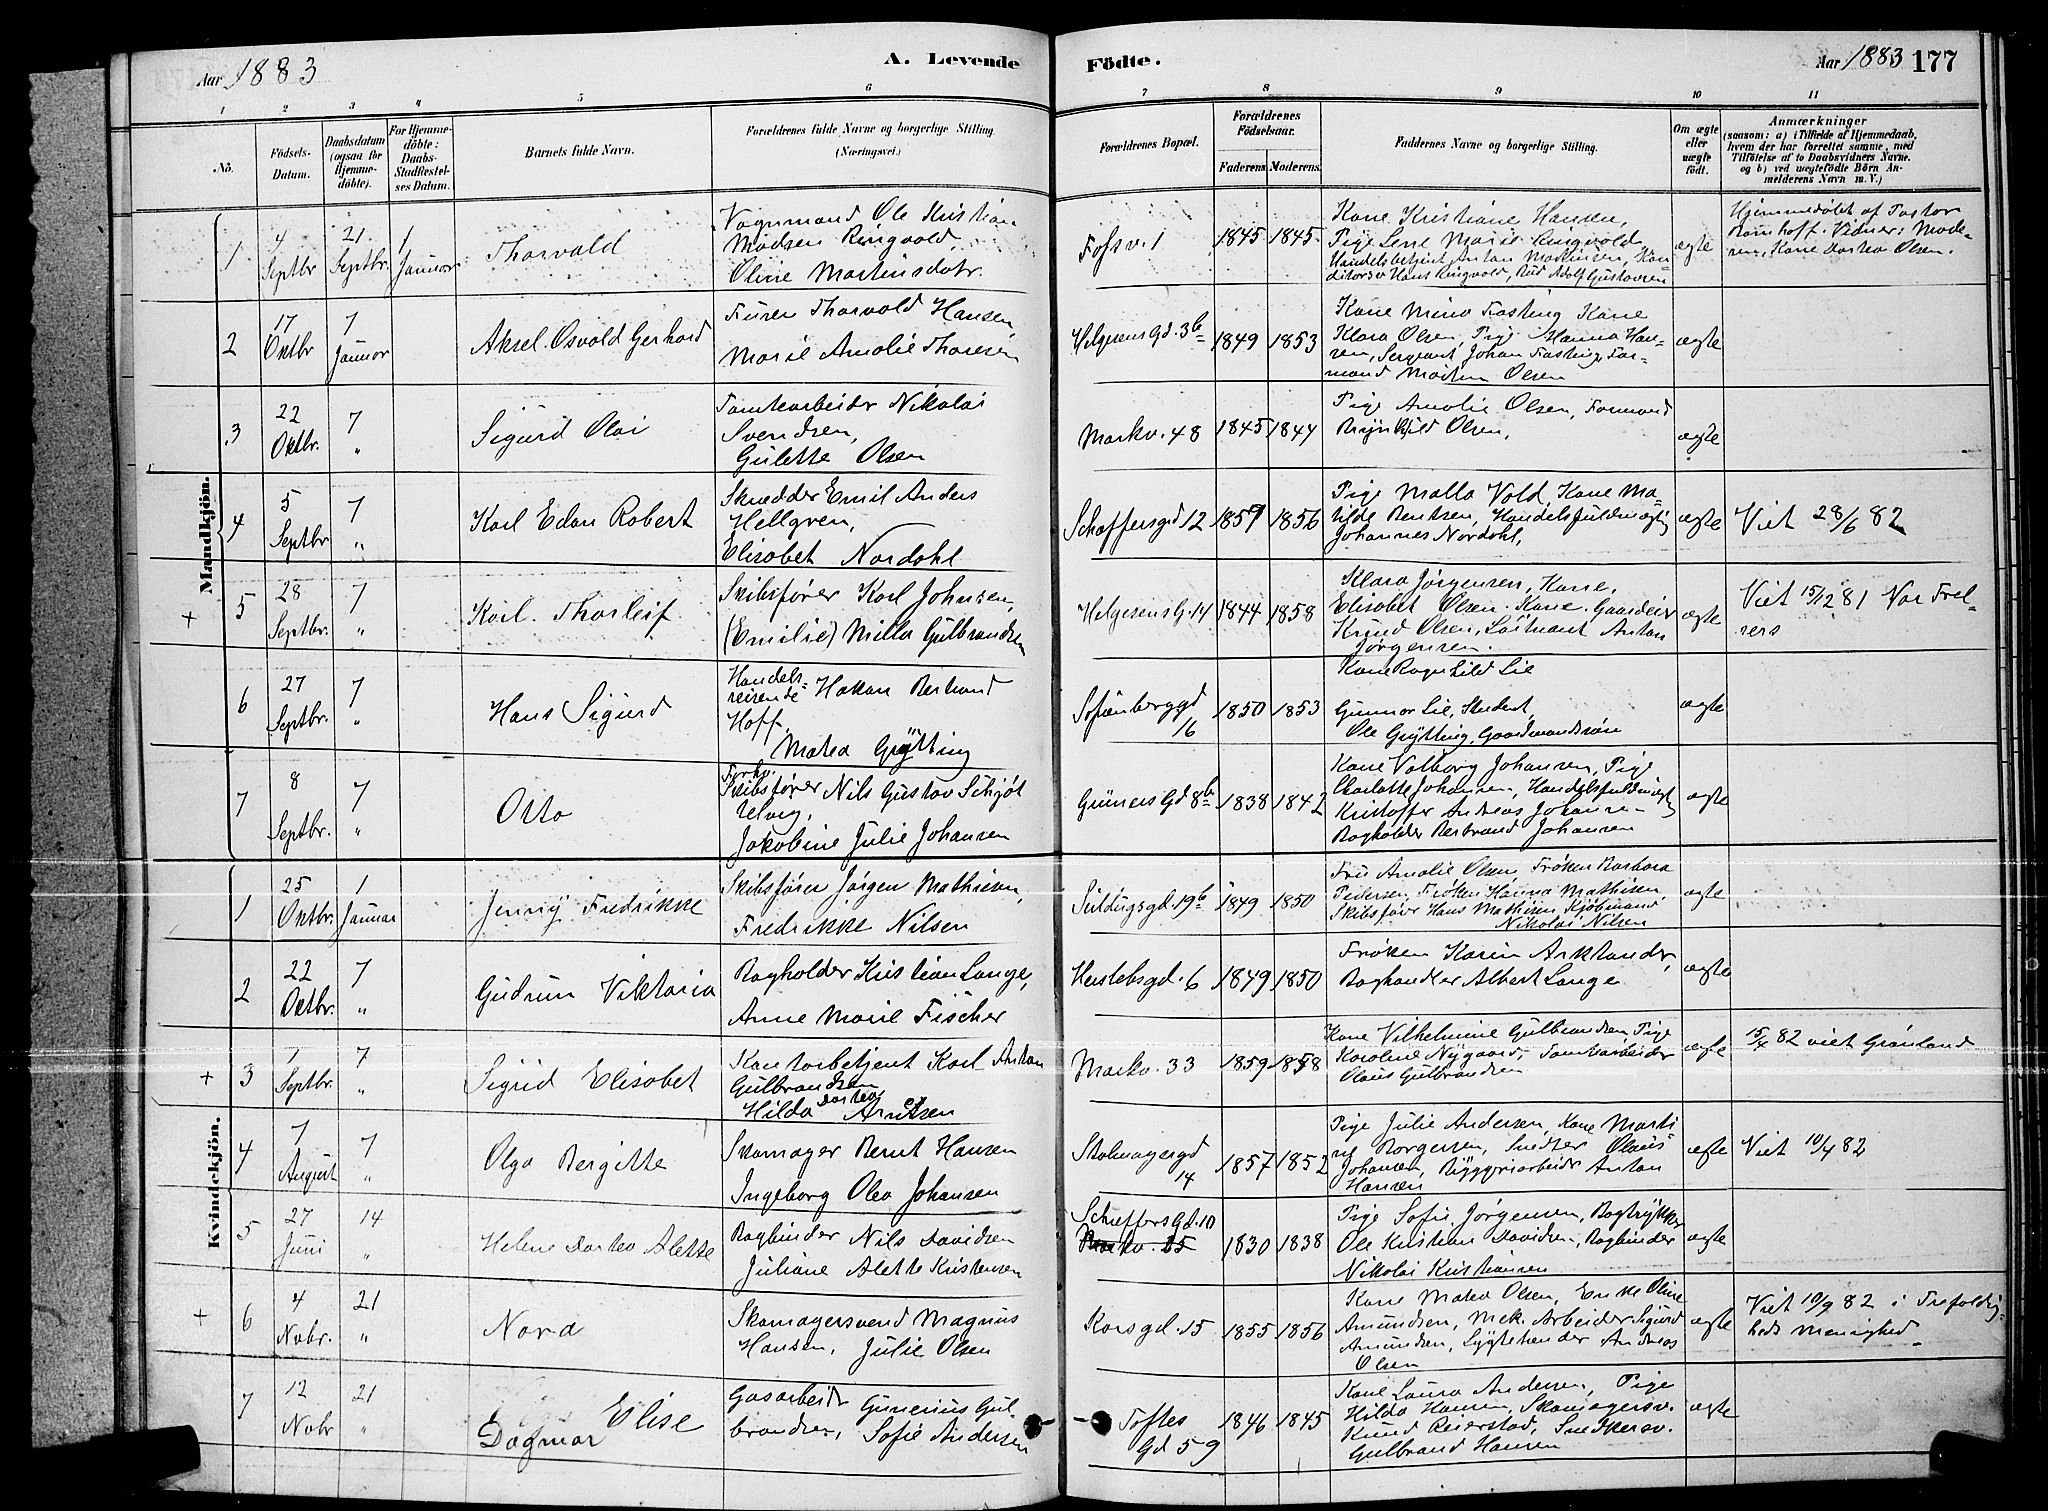 Aar 1883
A. Levende
Födte.
Aar 1883 177
1 2 3 4 5 6 7 8 9 10 11
No.
Födsels-
Datum.
Daabsdatum
(ogsaa for
Hjemme-
döbte).
For Hjemme-
döbte:
Daabs-
Stadfæstel-
ses Datum.
Barnets fulde Navn.
Forældrenes fulde Navne og borgerlige Stilling.
(Næringsvei.)
Forældrenes Bopæl.
Forældrenes
Födselsaar.
Faderens. Moderens.
Faddernes Navne og borgerlige Stilling.
Om ægte
eller
uægte
födt.
Anmærkninger
(saasom: a) i Tilfælde af Hjemmedaab,
hvem der har forrettet samme, med
Tilföielse af to Daabsvidners Navne.
og b) ved uægtefödte Börn An-
melderens Navn m. V.)
Mandkjön.
1
4
Septbr
21
Septbr.
1
Januar
Thorvald
Vognmand Ole Kristian
Madsen Ringvold,
Oline Martinsdatr.
Fossv. 1
1845 1845
Kone Kristiane Hansen,
Pige Lene Marie Ringvold,
Handelsbetjent Anton Martinsen, Kon-
ditorsv Hans Ringvold, Adolf Gustavsen
ægte
Hjemmedøbt af Pastor
Vidner: Mode-
ren, Kone Dortea Olsen.
2
17
Oktbr
7
Januar
Aksel Osvald Gerhard
Thorvald Hansen
Marie Amalie Thoresen
Helgesens Gd. 3b
1849 1853
Kone Mina Fasting Kone
Klara Olsen, Pige Hanna Han-
sen, Sergeant Johan Fasting, For-
mand Martin Olsen
ægte
3
22
Oktbr.
7
"
Sigurd Olai
Tomtearbeider Nikolai
Svendsen,
Gulette Olsen
Markv. 48
1845 1844
Pige Amalie Olsen, Formand
Brynhild Olsen,
ægte
4
5
Septbr
7
"
Karl Edon Robert
Skrædder Emil Anders
Hellgren,
Elisabet Nordahl
Schæffersgd 12
1857 1856
Pige Malla Vold, Kone Ma-
tilde Bentsen, Handelsfuldmægtig
Johannes Nordahl,
ægte
Viet 28/6 82
+
5
28
Septbr.
7
"
Karl Thorleif
Skibsfører Karl Johnsen,
(Emilie) Milla Gulbrandsen
Helgesens G. 14
1844 1858
Klara Jørgensen, Kone,
Elisabet Olsen, Kone, Gaardeier
Knud Olsen, Løitnant Anton
Jørgensen.
ægte
Viet 15/12 81 Vor Frel-
sers
6
27
Septbr.
7
"
Hans Sigurd
Handels-
reisende Hakon Bertrand
Hoff,
Matea Grytting
Sofienberggd
16
1850 1853
Kone Ragnhild Lie
Gunnar Lie, Student,
Ole Grytting, Gaardmandssøn
ægte
7
8
Septbr.
7
"
Otto
Forhv.
Skibsfører Nils Gustav Schjøt
Jakobine Julie Johansen
Grüners Gd 8b
1838 1842
Kone Valborg Johansen, Pige
Charlotte Johansen, Handelsfuldmægtig
Kristoffer Andreas Johansen
Bogholder Bertrand Johansen
ægte
Kvindekjön.
1
25
Oktbr.
1
Januar
Jenny Fredrikke
Skibsfører Jørgen Mathisen,
Fredrikke Nilsen
Suldugsgd. 19b
1849 1850
Fru Amalie Olsen, Frøken Barbara
Pedersen Frøken Hanna Mathisen,
Skibsfører Hans Mathisen, Kjøbmand
Nikolai Nilsen
ægte
2
22
Oktbr.
7
"
Gudrun Viktoria
Bogholder Kristian Lange,
Anne Marie Fischer
Herslebsgd. 6
1849 1850
Frøken Karin Arktander,
Boghandler Albert Lange
ægte
+
3
1
Septbr.
7
"
Sigrid Elisabet
Kontorbetjent Karl Anton
Gulbrandsen
Hilda Dortea Arntsen
Markv. 33
1859 1858
Kone Vilhelmine Gulbrandsen, Pige
Karoline Nygaard, Tomtearbeider
Olaus Gulbrandsen
ægte
15/4 82 viet Grønland
4
7
August
7
"
Olga Bergitte
Skomager Bernt Hansen
Ingeborg Olea Johansen
Stolmagergd
14
1857 1852
Pige Julie Andersen, Kone Marti
ne Borgersen, Snedker Olaus
Johansen, Byggeriarbeider Anton
Hansen
ægte
Viet 10/4 82
5
27
Juni
14
"
Helene Dortea Alette
Bogbinder Nils Davidsen
Juliane Alette Kristensen
Scheffers Gd. 10
Markv. 25
1830 1838
Pige Sofie Jørgensen, Bogtrykker
Ole Kristian Davidsen, Bogbinder
Nikolai Kristiansen
ægte
+
6
4
Nobr.
21
"
Nora
Skomagersvend Magnus
Hansen, Julie Olsen
Korsgd. 15
1855 1856
Kone Matea Olsen, Enke Oline
Amundsen, Mek. Arbeider Sigurd
Amundsen, Lygtetender Andreas
Olsen
ægte
Viet 10/9 82 i Trefoldig-
heds Menighed
7
12
Nobr
21
"
Dagmar Elise
Gasarbeidr Gunerius Gul
brandsen, Sofie Andersen
Toftes
Gd 59
1846 1845
Kone Laura Andersen, Pige
Hilda Hansen, Skomagersv.
Knud Reierstad, Snedkersv.
Gulbrand Hansen
ægte